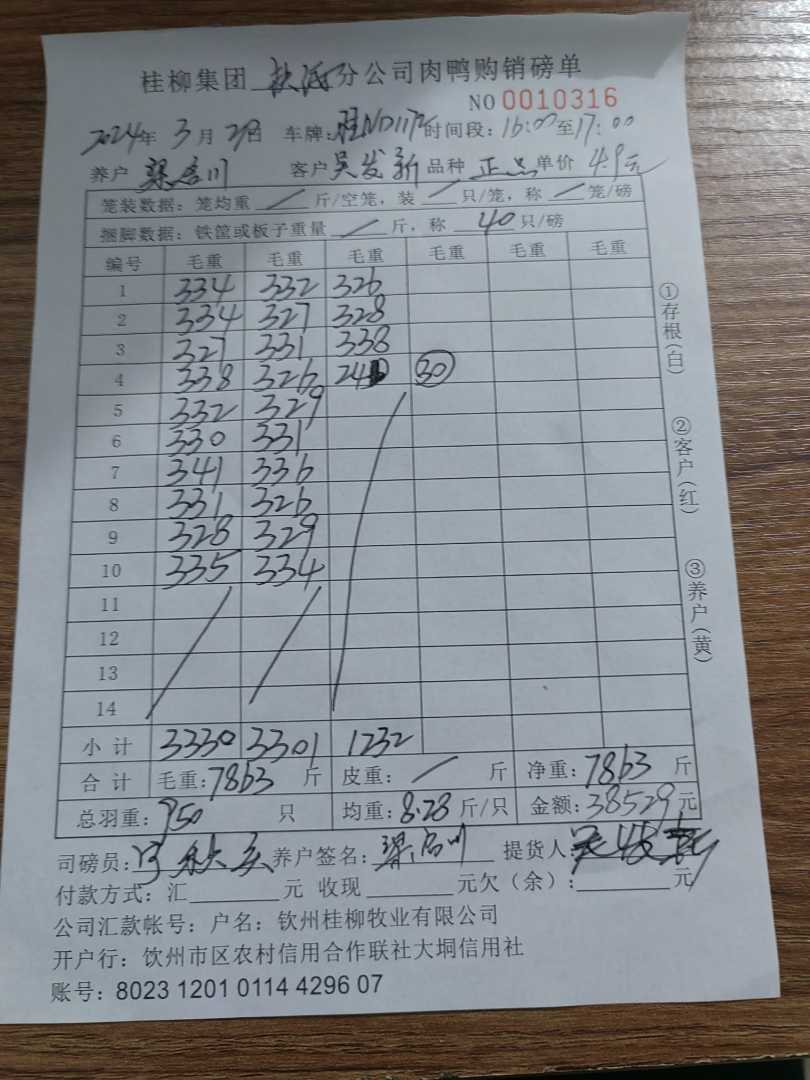 桂柳集团 钦源 分公司肉鸭购销磅单
NO 0010316
2024年 3月 29日 车牌: 桂ND1172 时间段: 16:00至17:00
养户 梁启川 客户 吴发新 品种 正品 单价 4.9元
笼装数据: 笼均重 / 斤/空笼, 装 / 只/笼, 称 / 笼/磅
捆脚数据: 铁筐或板子重量 / 斤, 称 40 只/磅
编号 毛重 毛重 毛重 毛重 毛重 毛重
1 334 332 326
2 334 327 328
3 327 331 338
4 338 326 240 30
5 332 329
6 330 331
7 341 336
8 331 326
9 328 329
10 335 334
11
12
13
14
小计 3330 3301 1232
合计 毛重: 7863 斤 皮重: / 斤 净重: 7863 斤
总羽重: 950 只 均重: 8.28 斤/只 金额: 38529 元
司磅员: 养户签名: 梁启川 提货人: 吴发新
付款方式: 汇 元 收现 元欠(余): 元
公司汇款帐号: 户名: 钦州桂柳牧业有限公司
开户行: 饮州市区农村信用合作联社大垌信用社
账号: 8023 1201 0114 4296 07
①存根(白)
②客户(红)
③养户(黄)